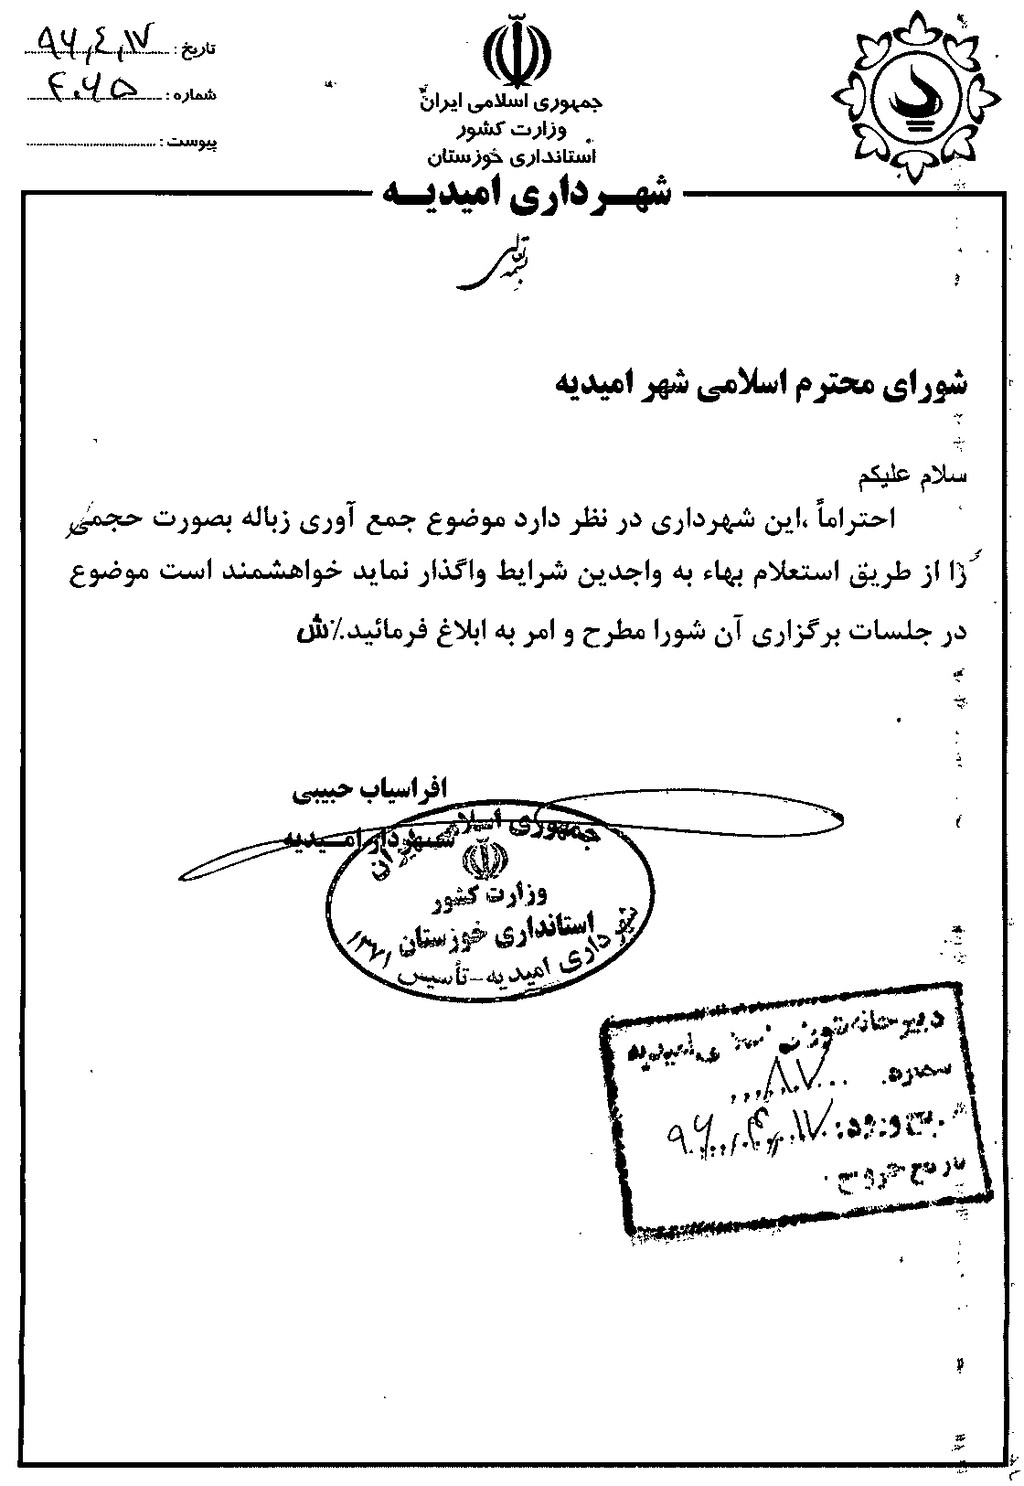 تاریخ : ۹۶,۴,۱۷
شماره : ۴۰۶۵
پیوست :
جمهوری اسلامی ایران
وزارت کشور
استانداری خوزستان
شهـرداری امیدیـه
بسمه تعالی
شورای محترم اسلامی شهر امیدیه
سلام علیکم
احتراماً ،این شهرداری در نظر دارد موضوع جمع آوری زباله بصورت حجمی
را از طریق استعلام بهاء به واجدین شرایط واگذار نماید خواهشمند است موضوع
در جلسات برگزاری آن شورا مطرح و امر به ابلاغ فرمائید./ش
افراسیاب حبیبی
شهردار امیدیه
جمهوری اسلامی ایران
وزارت کشور
استانداری خوزستان
شهرداری امیدیه - تأسیس ۱۳۷۱
دبیرخانه شورای اسلامی امیدیه
شماره
تاریخ ورود: ۹۶/۴/۱۷
تاریخ خروج: